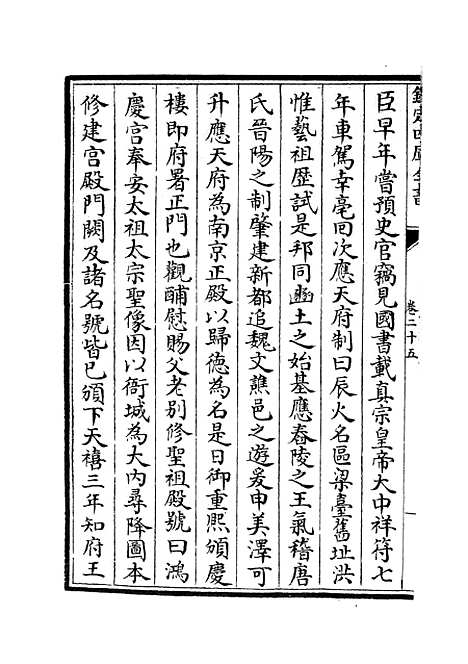 欽定四庫全書
卷二十五
臣早年嘗預史官竊見國書載真宗皇帝大中祥符七
年車駕幸亳回次應天府制曰辰火名區梁臺舊址洪
惟藝祖歷試是邦同豳土之始基應舂陵之王氣稽唐
氏晉陽之制肇建新都追魏文譙邑之遊爰申美澤可
升應天府為南京正殿以歸德為名是日御重熙頒慶
樓即府署正門也觀酺慰賜父老別修聖祖殿號曰鴻
慶宫奉安太祖太宗聖像因以衙城為大内尋降圖本
修建宫殿門闕及諸名號皆已頒下天禧三年知府王